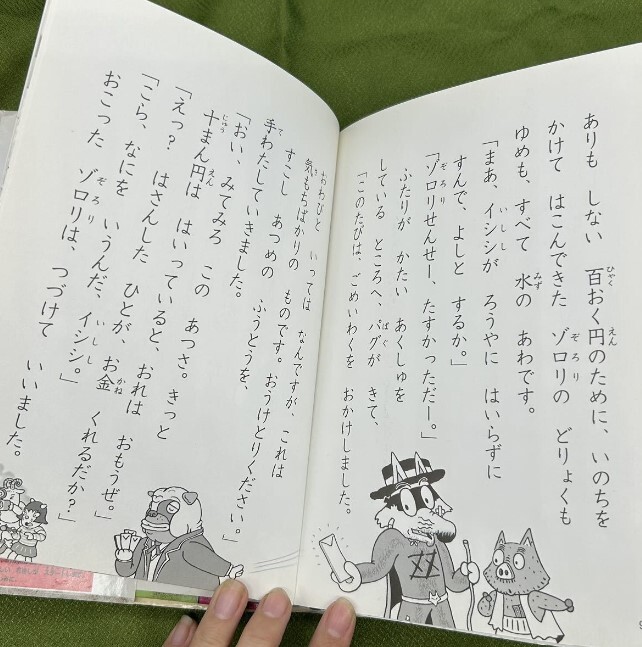 ありも しない 百おく円のために、いのちを
かけて はこんできた ゾロリの どりょくも
ゆめも、すべて 水の あわです。
「まあ、イシシが ろうやに はいらずに
すんで、よしと するか。」
「ゾロリせんせー、たすかっただー。」
ふたりが かたい あくしゅを
している ところへ、パグが きて、
「このたびは、ごめいわくを おかけしました。
おわびと いっては なんですが、これは
気もちばかりの ものです。おうけとりください。」
すこし あつめの ふうとうを、
手わたしていきました。
「おい、みてみろ この あつさ。きっと
十まん円は はいっていると、おれは おもうぜ。」
「えっ? はさんした ひとが、お金 くれるだか?」
「こら、なにを いうんだ、イシシ。」
おこった ゾロリは、つづけて いいました。